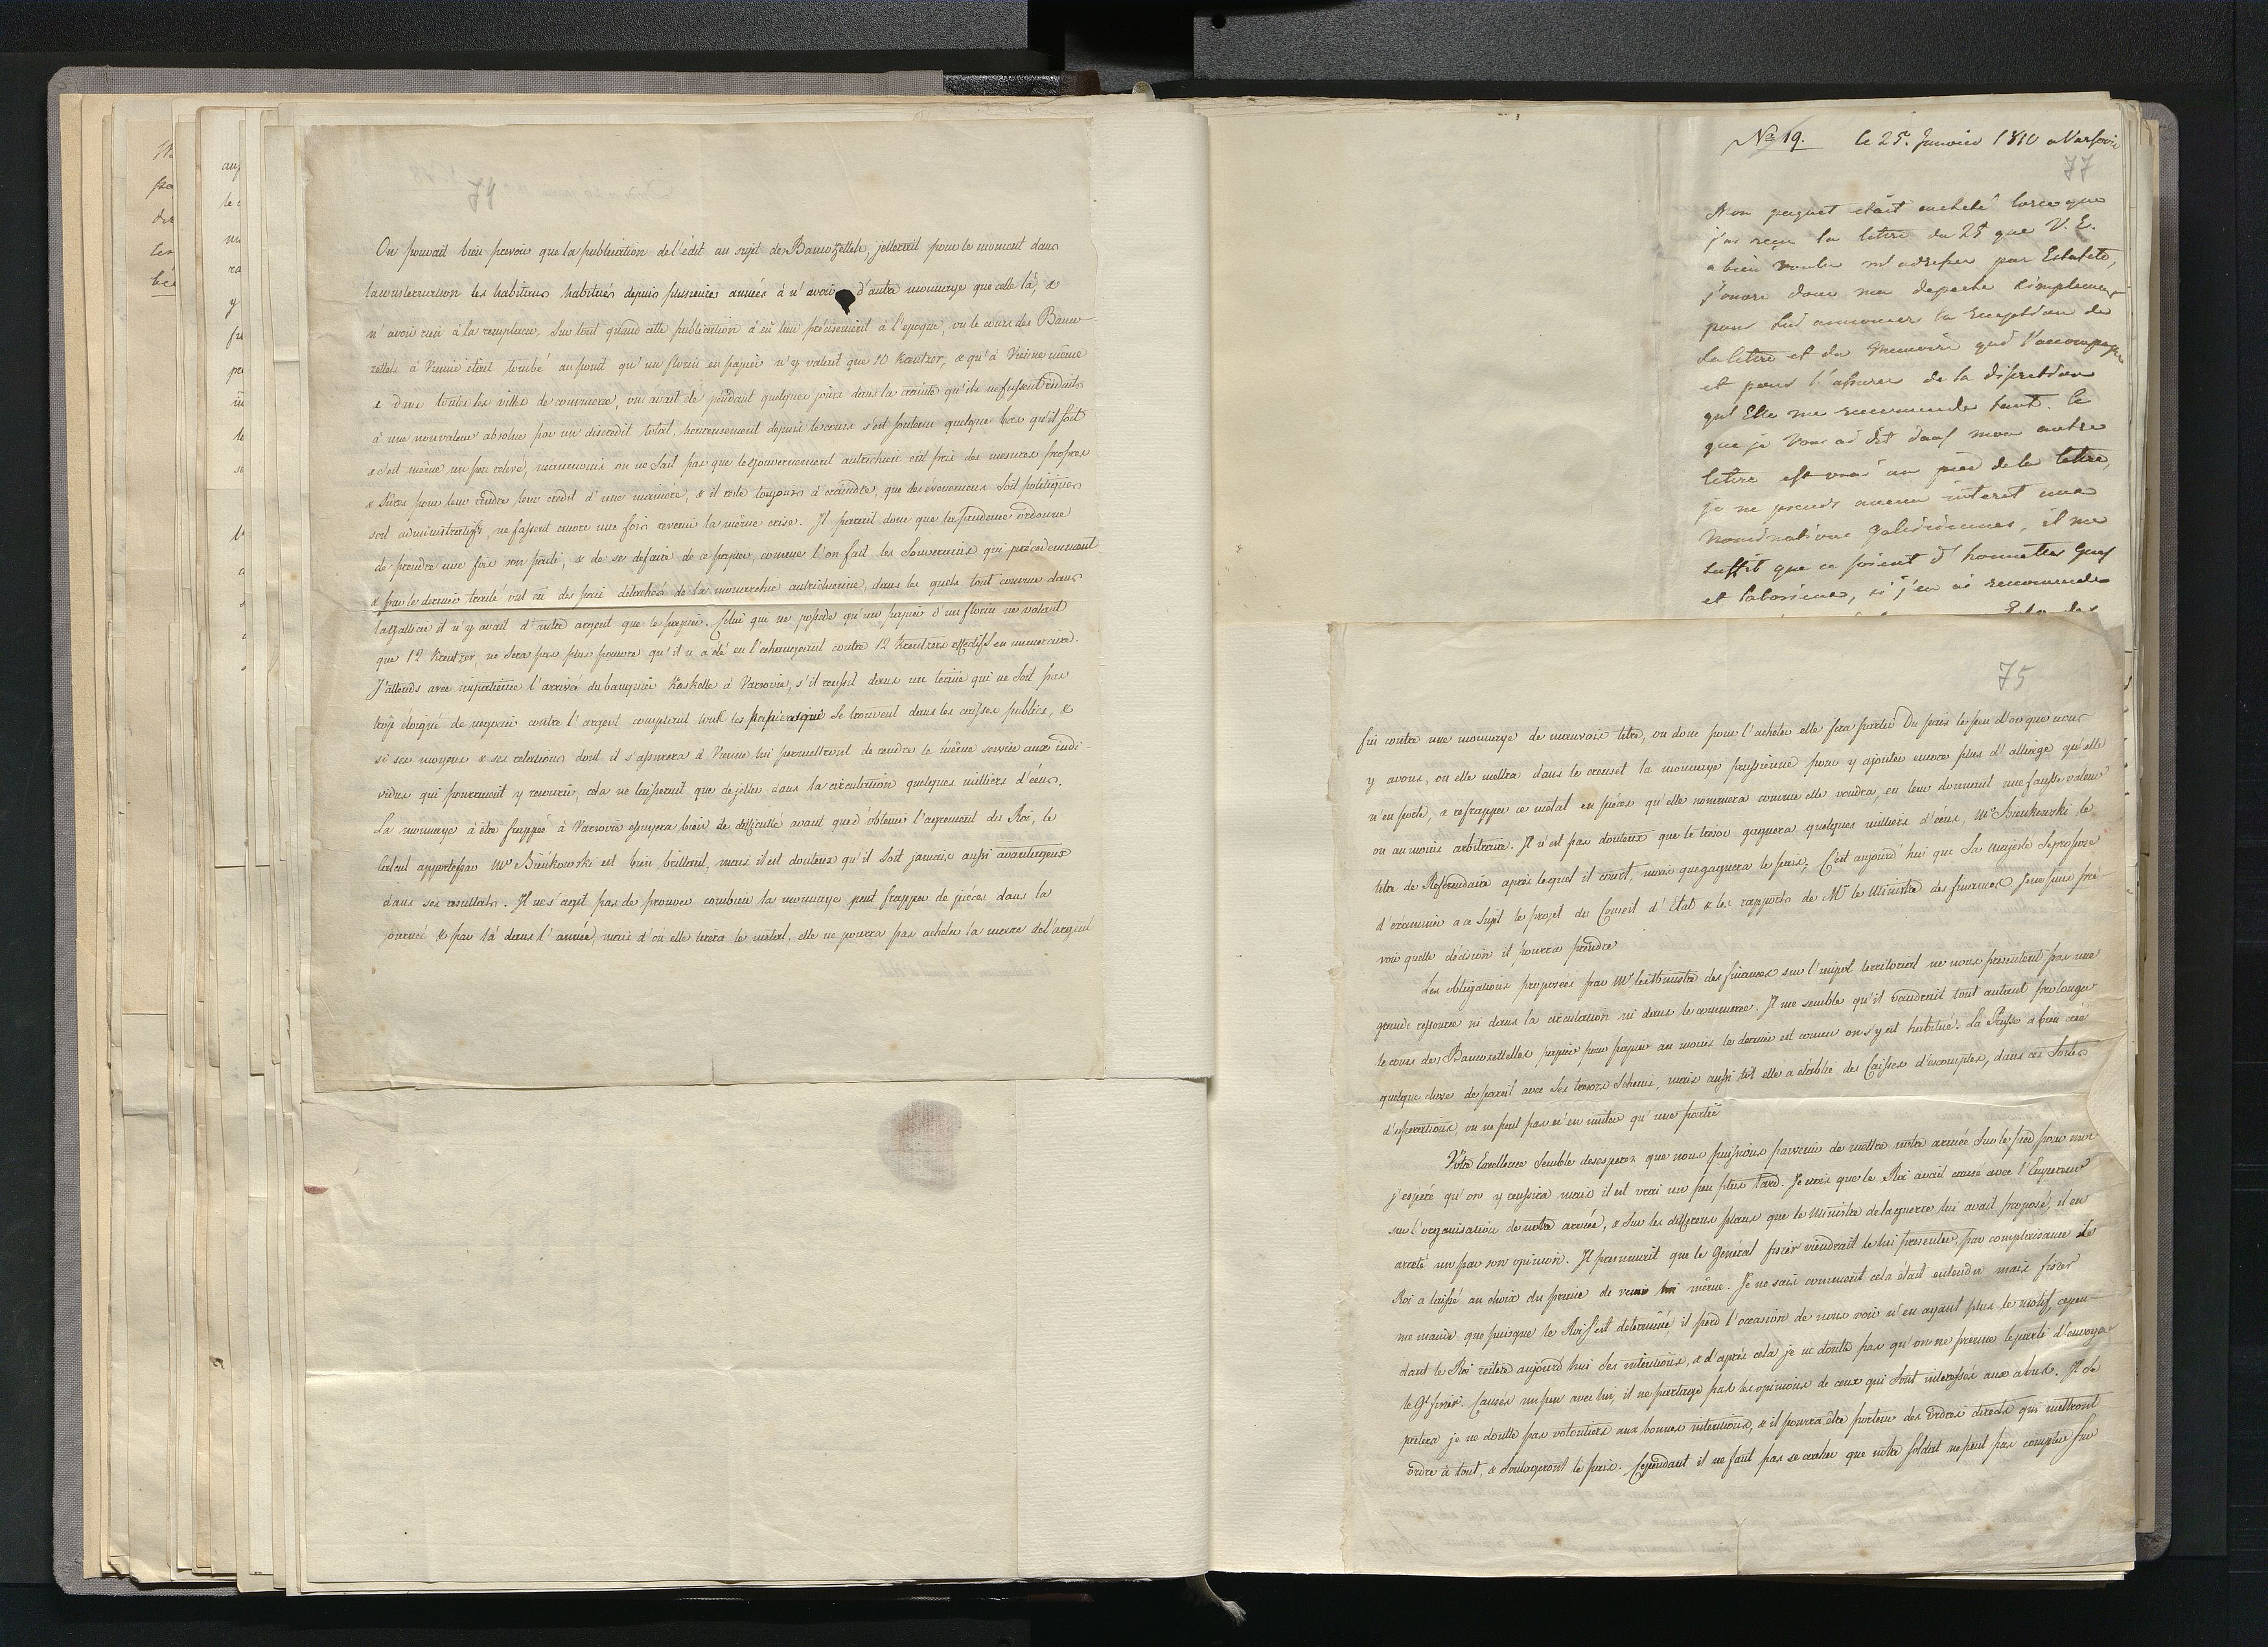 74
On pouvait bien prevoir que la publication de l'édit au sujet des Bancozettels, jetterait pour le moment dans
la consternation les habitans habitués depuis plusieures années à n'avoir d'autre monnaye que celle là, &
n'avoir rien à la remplacer. Sur tout quand cette publication à eu lieu précisement à l'epoque, ou le cours des Banco-
zettels à Vienne étent tombé au point qu'un florin en papier n'y valait que 10 Kreutzer, & qu'à Vienne même
& dans toutes les villes de commerce, on avait été pendant quelques jours dans la crainte qu'ils ne fussent réduits
à une nonvaleur absolue par un discredit total, heureusement depuis le cours s'est soutenu quelque bas qu'il soit
& s'est même un peu relevé, neanmoins on ne sait pas que le gouvernement autrichien eût pris des mesures propres
& sûres pour leur rendre leur credit d'une maniere, & il reste toujours à craindre, que des évenemens soit politiques
soit administratifs, ne fassent encore une fois revenir la même crise. Il parait donc que la prudence ordonne
de prendre une fois son parti, & de se defaire de ce papier, comme l'on fait les Souverains qui précedemment
& par le dernier traité ont eu des païs détachés de la monarchie autrichienne, dans les quels tout comme dans
la Gallicie il n'y avait d'autre argent que le papier. Celui que ne possede qu'un papier d'un florin ne valant
que 12 Kreutzer, ne sera pas plus pauvre qu'il n'a été en l'echangeant contre 12 Kreutzers effectifs en numeraire.
J'attends avec impatience l'arrivée du banquier Kaskelle à Varsovie, s'il reussit dans un terme qui ne soit pas
trop éloigné de negocier contre l'argent comptant tout les papiers qui se trouvent dans les caisses publics, &
si ses moyens & ses relations dont il s'assurera à Vienne lui permettront de rendre le même service aux indi-
vidus qui pourraient y recourir, cela ne laisserait que de jetter dans la circulation quelques milliers d'écus.
La monnaye à être frappée à Varsovie essuyera bien de difficulté avant que d'obtenir l'agrement du Roi, le
calcul apporté par Mr Bieńkowski est bien brillant, mais il est douteux qu'il soit jamais aussi avantageux
dans ses resultats. Il ne s'agit pas de prouver combien la monnaye peut frapper de piéces dans la
journée & par là dans l'année, mais d'ou elle tirera le métal, elle ne pourra pas acheter la marc de l'argent
No 19. le 25. Janvier 1810 a Varsovie
77
Mon paquet etait cacheté lorsque
j'ai reçu la lettre du 21 que V. E.
a bien voulu m'adresser par Estafete,
j'ouvre donc ma depeche simplement
pour lui annoncer la reception de
la lettre et du memoire qui l'accompagne
et pour l'assurer de la discretion
qu'Elle me recommende tant. Ce
que je vous ai dit dans mon autre
lettre est vrai au pied de la lettre,
je ne prends aucun interet aux
nominations galiciennes, il me
suffit que ce soient d'honnetes gens
et laborieux, si j'en ai recommendé
75
fin contre une monnaye de mauvais titre, ou donc pour l'acheter elle fera sortir du païs le peu d'or que nous
y avons, ou elle mettra dans le creuset la monnaye prussienne pour y ajouter encore plus d'alliage qu'elle
n'en porte, & refrapper ce metal en piéces qu'elle nommera comme elle voudra, en leur donnant une fausse valeur
ou au moins arbitraire. Il n'est pas douteux que le tresor gagnera quelques milliers d'écus, Mr Bienkowski le
titre de Referendaire après lequel il court, mais que gagnera le païs? C'est aujourd'hui que Sa Majesté se propose
d'examiner a ce sujet le projet du Conseil d'Etat & les rapports de Mr le Ministre des finances. Je ne puis pré-
voir quelle décision il pourra prendre
Les obligations proposées par Mr le Ministre des finances sur l'impot territorial ne nous presentent pas une
grande ressource ni dans la circulation ni dans le commerce. Il me semble qu'il vaudrait tout autant prolonger
le cours des Bancozettelles papier pour papier au moins le dernier est connu on s'y est habitué. La Prusse a bien créé
quelque chose de pareil avec ses tresors scheins, mais aussi tôt elle a établie des Caisses d'escomptes, dans ces sortes
d'operations, on ne peut pas n'en imiter qu'une partie
Votre Excellence semble desesperer que nous puissions parvenir de mettre notre armée sur le pied pour moi
j'espere qu'on y reussira mais il est vrai un peu plus tard. Je crois que le Roi avait causé avec l'Empereur
sur l'organisation de notre armée, & sur les differens plans que le Ministre de la guerre lui avait proposé, il en
arreté un par son opinion. Il presumait que le Général fiszer viendrait le lui presenter, par complaisance le
Roi a laissé au choix du prince de venir lui même. Je ne sais comment cela était entendu mais fiszer
me mande que puisque le Roi s'est determiné, il perd l'occasion de nous voir n'en ayant plus le motif, cepen-
dant le Roi reitere aujourd'hui ses intentions, & d'après cela je ne doute pas qu'on ne prenne le parti d'envoyer
le Gl fiszer. Causés un peu avec lui, il ne partage pas les opinions de ceux qui sont interessés aux abus. Il se
pretera je ne doutte pas volontiers aux bonnes intentions, & il pourra être porteur des ordres directs qui mettront
ordre à tout, & soulageront le païs. Cependant il ne faut pas se cacher que notre soldat ne peut pas compter sur